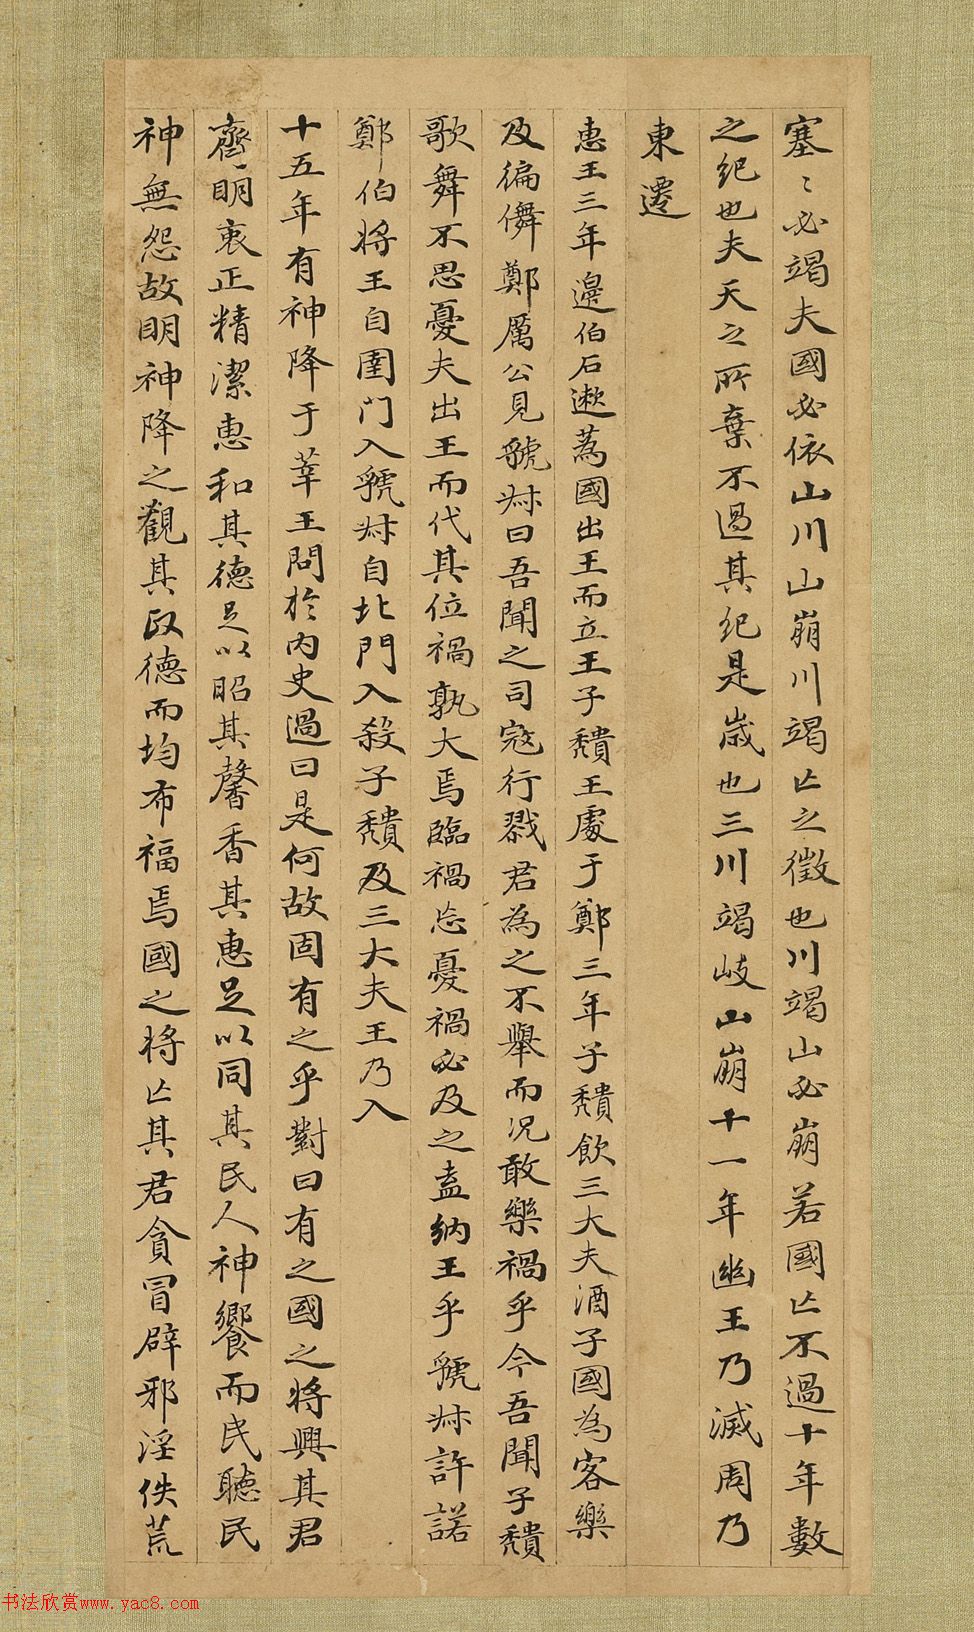 塞〻必竭夫國必依山川山崩川竭亡之徵也川竭山必崩若國亡不過十年數
之紀也夫天之所棄不過其紀是歲也三川竭岐山崩十一年幽王乃滅周乃
東遷
惠王三年邉伯石遬蒍國出王而立王子穨王處于鄭三年子穨飲三大夫酒子國為客樂
及徧儛鄭厲公見虢叔曰吾聞之司寇行戮君為之不舉而況敢樂禍乎今吾聞子穨
歌舞不思憂夫出王而代其位禍孰大焉臨禍忘憂禍必及之盍納王乎虢叔許諾
鄭伯将王自圉門入虢叔自北門入殺子穨及三大夫王乃入
十五年有神降于莘王問於内史過曰是何故固有之乎對曰有之國之将興其君
齊明衷正精潔惠和其德足以昭其馨香其惠足以同其民人神饗而民聽民
神無怨故明神降之觀其政德而均布福焉國之将亡其君貪冒辟邪淫佚荒
书法欣赏www.yac8.com